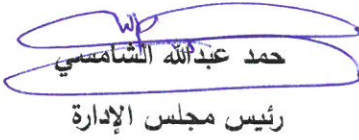 حمد عبدالله الشامسي
رئيس مجلس الإدارة